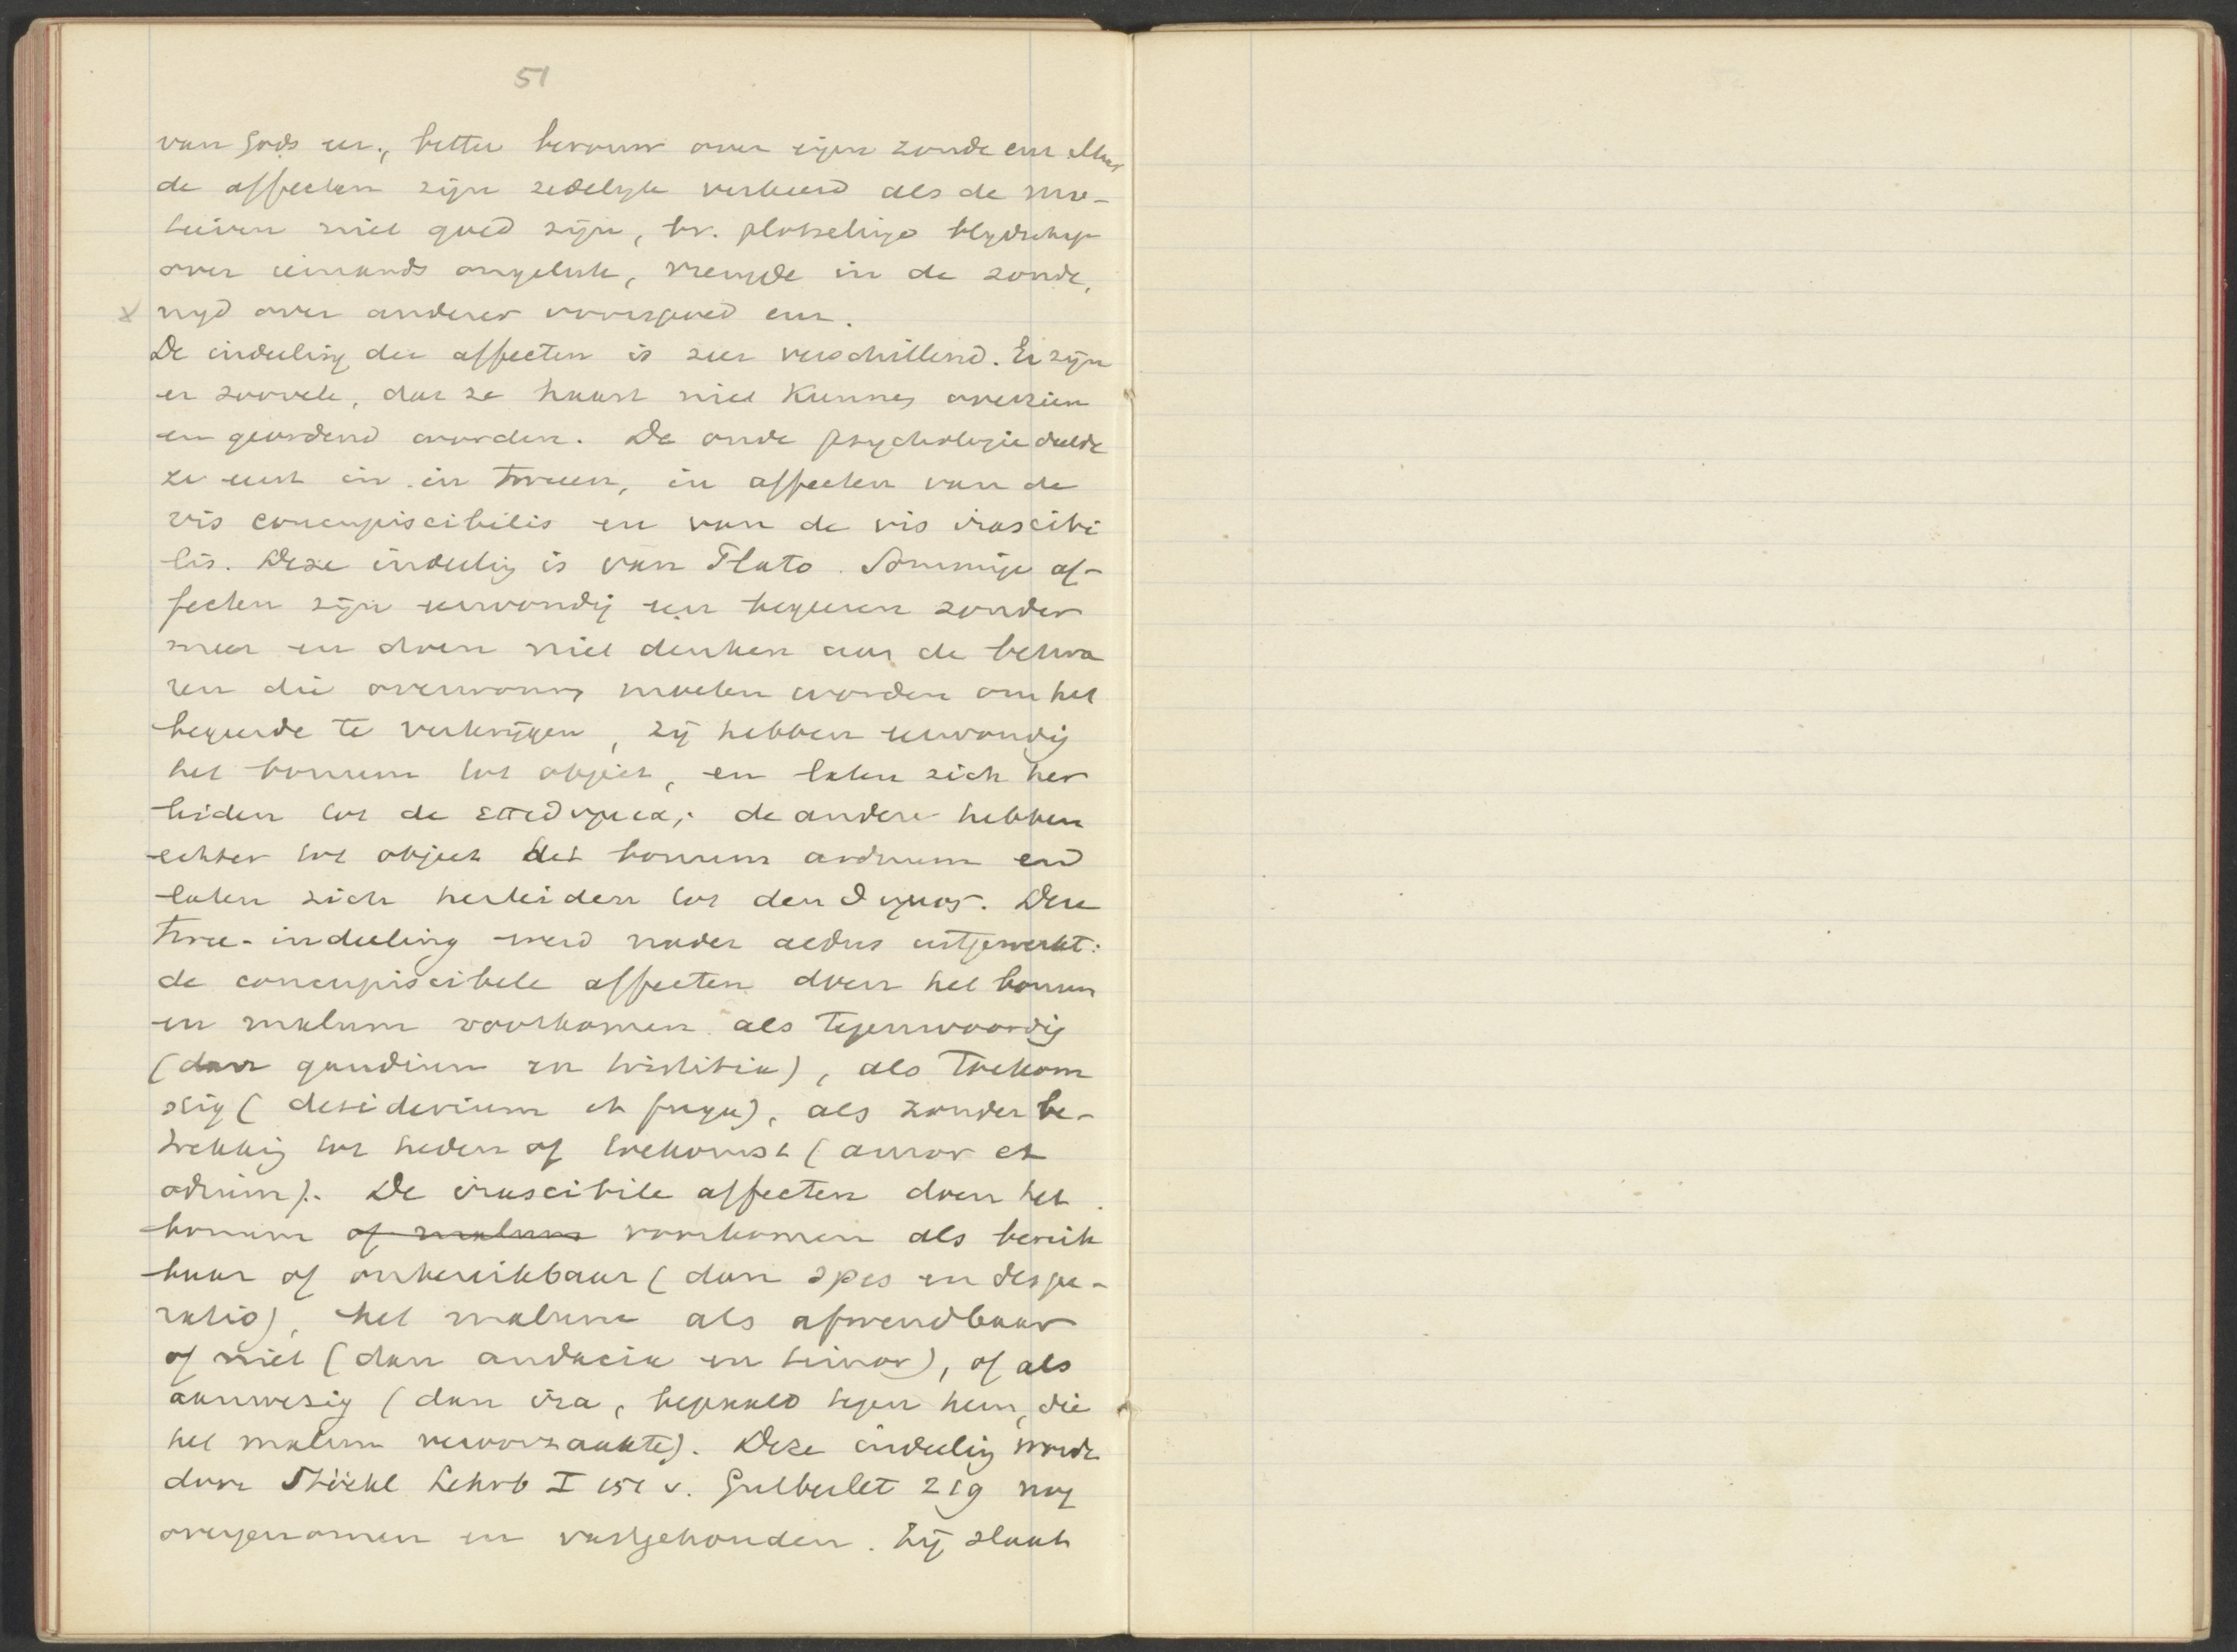 51
van Gods eer, bitter berouw over eigen zonde enz. Maar
de affecten zijn zedelijk verkeerd als de mo-
tieven niet goed zijn, bv. plotselinge blydschap
over iemands ongeluk, vreugde in de zonde,
x nyd over anderer voorspoed enz.
De indeeling der affecten is zeer verschillend. Er zijn
er zoovele, dat ze haast niet kunnen overzien
en geordend worden. De oude psychologie deelde
ze eerst in in tweeen, in affecten van de
vis concupiscibilis en van de vis irascibi
lis. Deze indeeling is van Plato. Sommige af-
fecten zijn eenvoudig een begeeren zonder
meer en doen niet denken aan de bezwa
ren die overwonnen moeten worden om het
begeerde te verkrijgen, zij hebben eenvoudig
het bonum tot object, en laten zich her
leiden tot de επιθυμια; de andere hebben
echter tot object het bonum arduum en
laten zich herleiden tot den θυμος. Deze
twee-indeeling werd nader aldus uitgewerkt:
de concupiscibele affecten doen het bonum
en malum voorkomen als tegenwoordig
(dan gaudium en tristitia), als toekom
stig (desiderium et fuga), als zonder be-
trekking tot heden of toekomst (amor et
odium). De irascibile affecten doen het
bonum of malum voorkomen als bereik
baar of onbereikbaar (dan spes en despe-
ratio), het malum als afwendbaar
of niet (dan audacia en timor), of als
aanwezig (dan ira, bepaald tegen hem, die
het malum veroorzaakte). Deze indeeling wordt
door Stöckl Lehrb I 151 v. Gutberlet 219 nog
overgenomen en vastgehouden. Zij slaat